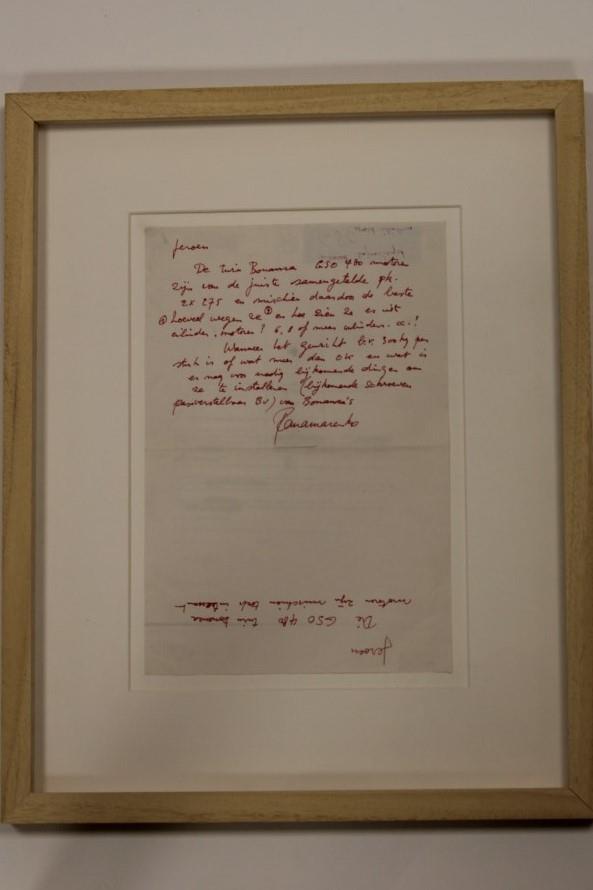 Jeroen
De twin Bonanza GSO 480 motoren
zijn van de juiste samengetelde pk.
2x 275 en mischien daardoor de beste
hoeveel wegen ze en hoe zien ze er uit
cilinder, motoren? 6, 8 of meer cilinders. cc.?
Wanneer het gewicht b.v. 300kg per
stuk is of wat meer dan ok en wat is
er nog voor nodig bijkomende dingen om
ze te installeren (bijkomende schroeven
BV) van Bonanza's
Panamarenko
Jeroen
Die GSO 480 twin bonanza
motoren zijn mischien toch